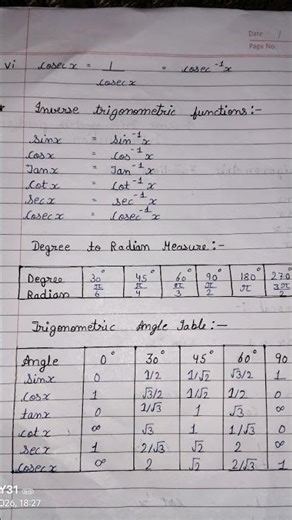 Date / /
Page No.
vi cosec x = 1/cosec x = cosec⁻¹x
Inverse trigonometric functions:-
Sinx = Sin⁻¹x
Cosx = Cos⁻¹x
Tanx = Tan⁻¹x
Cotx = Cot⁻¹x
Secx = sec⁻¹x
Cosecx = Cosec⁻¹x
Degree to Radian Measure:-
Degree 30° 45° 60° 90° 180° 270°
Radian π/6 π/4 π/3 π/2 π 3π/2
Trigonometric Angle Table:-
Angle 0° 30° 45° 60° 90
Sinx 0 1/2 1/√2 √3/2 1
Cosx 1 √3/2 1/√2 1/2 0
tanx 0 1/√3 1 √3 ∞
Cotx ∞ √3 1 1/√3 0
Secx 1 2/√3 √2 2 ∞
Cosecx ∞ 2 √2 2/√3 1
Y31
026, 18:27